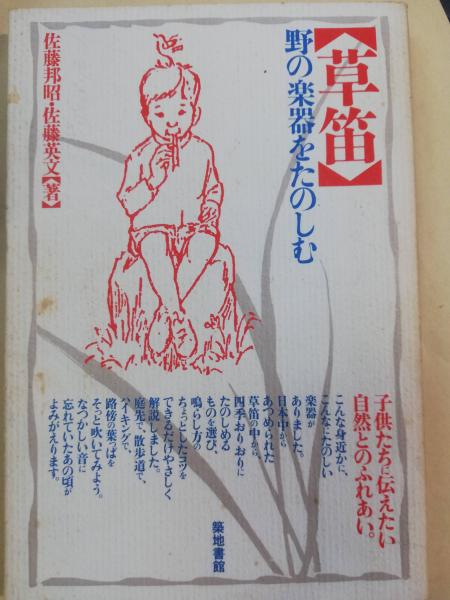 【草笛】
野の楽器をたのしむ
佐藤邦昭・佐藤英文【著】
子供たちに伝えたい
自然とのふれあい。
こんな身近かに、
こんなにたのしい
楽器が
ありました。
日本中から
あつめられた
草笛の中から、
四季おりおりに
たのしめる
ものを選び、
鳴らし方の
ちょっとしたコツを
できるだけやさしく
解説しました。
庭先で、散歩道で、
ハイキングで、
路傍の葉っぱを
そっと吹いてみよう。
なつかしい音に
忘れていたあの頃が
よみがえります。
築地書館